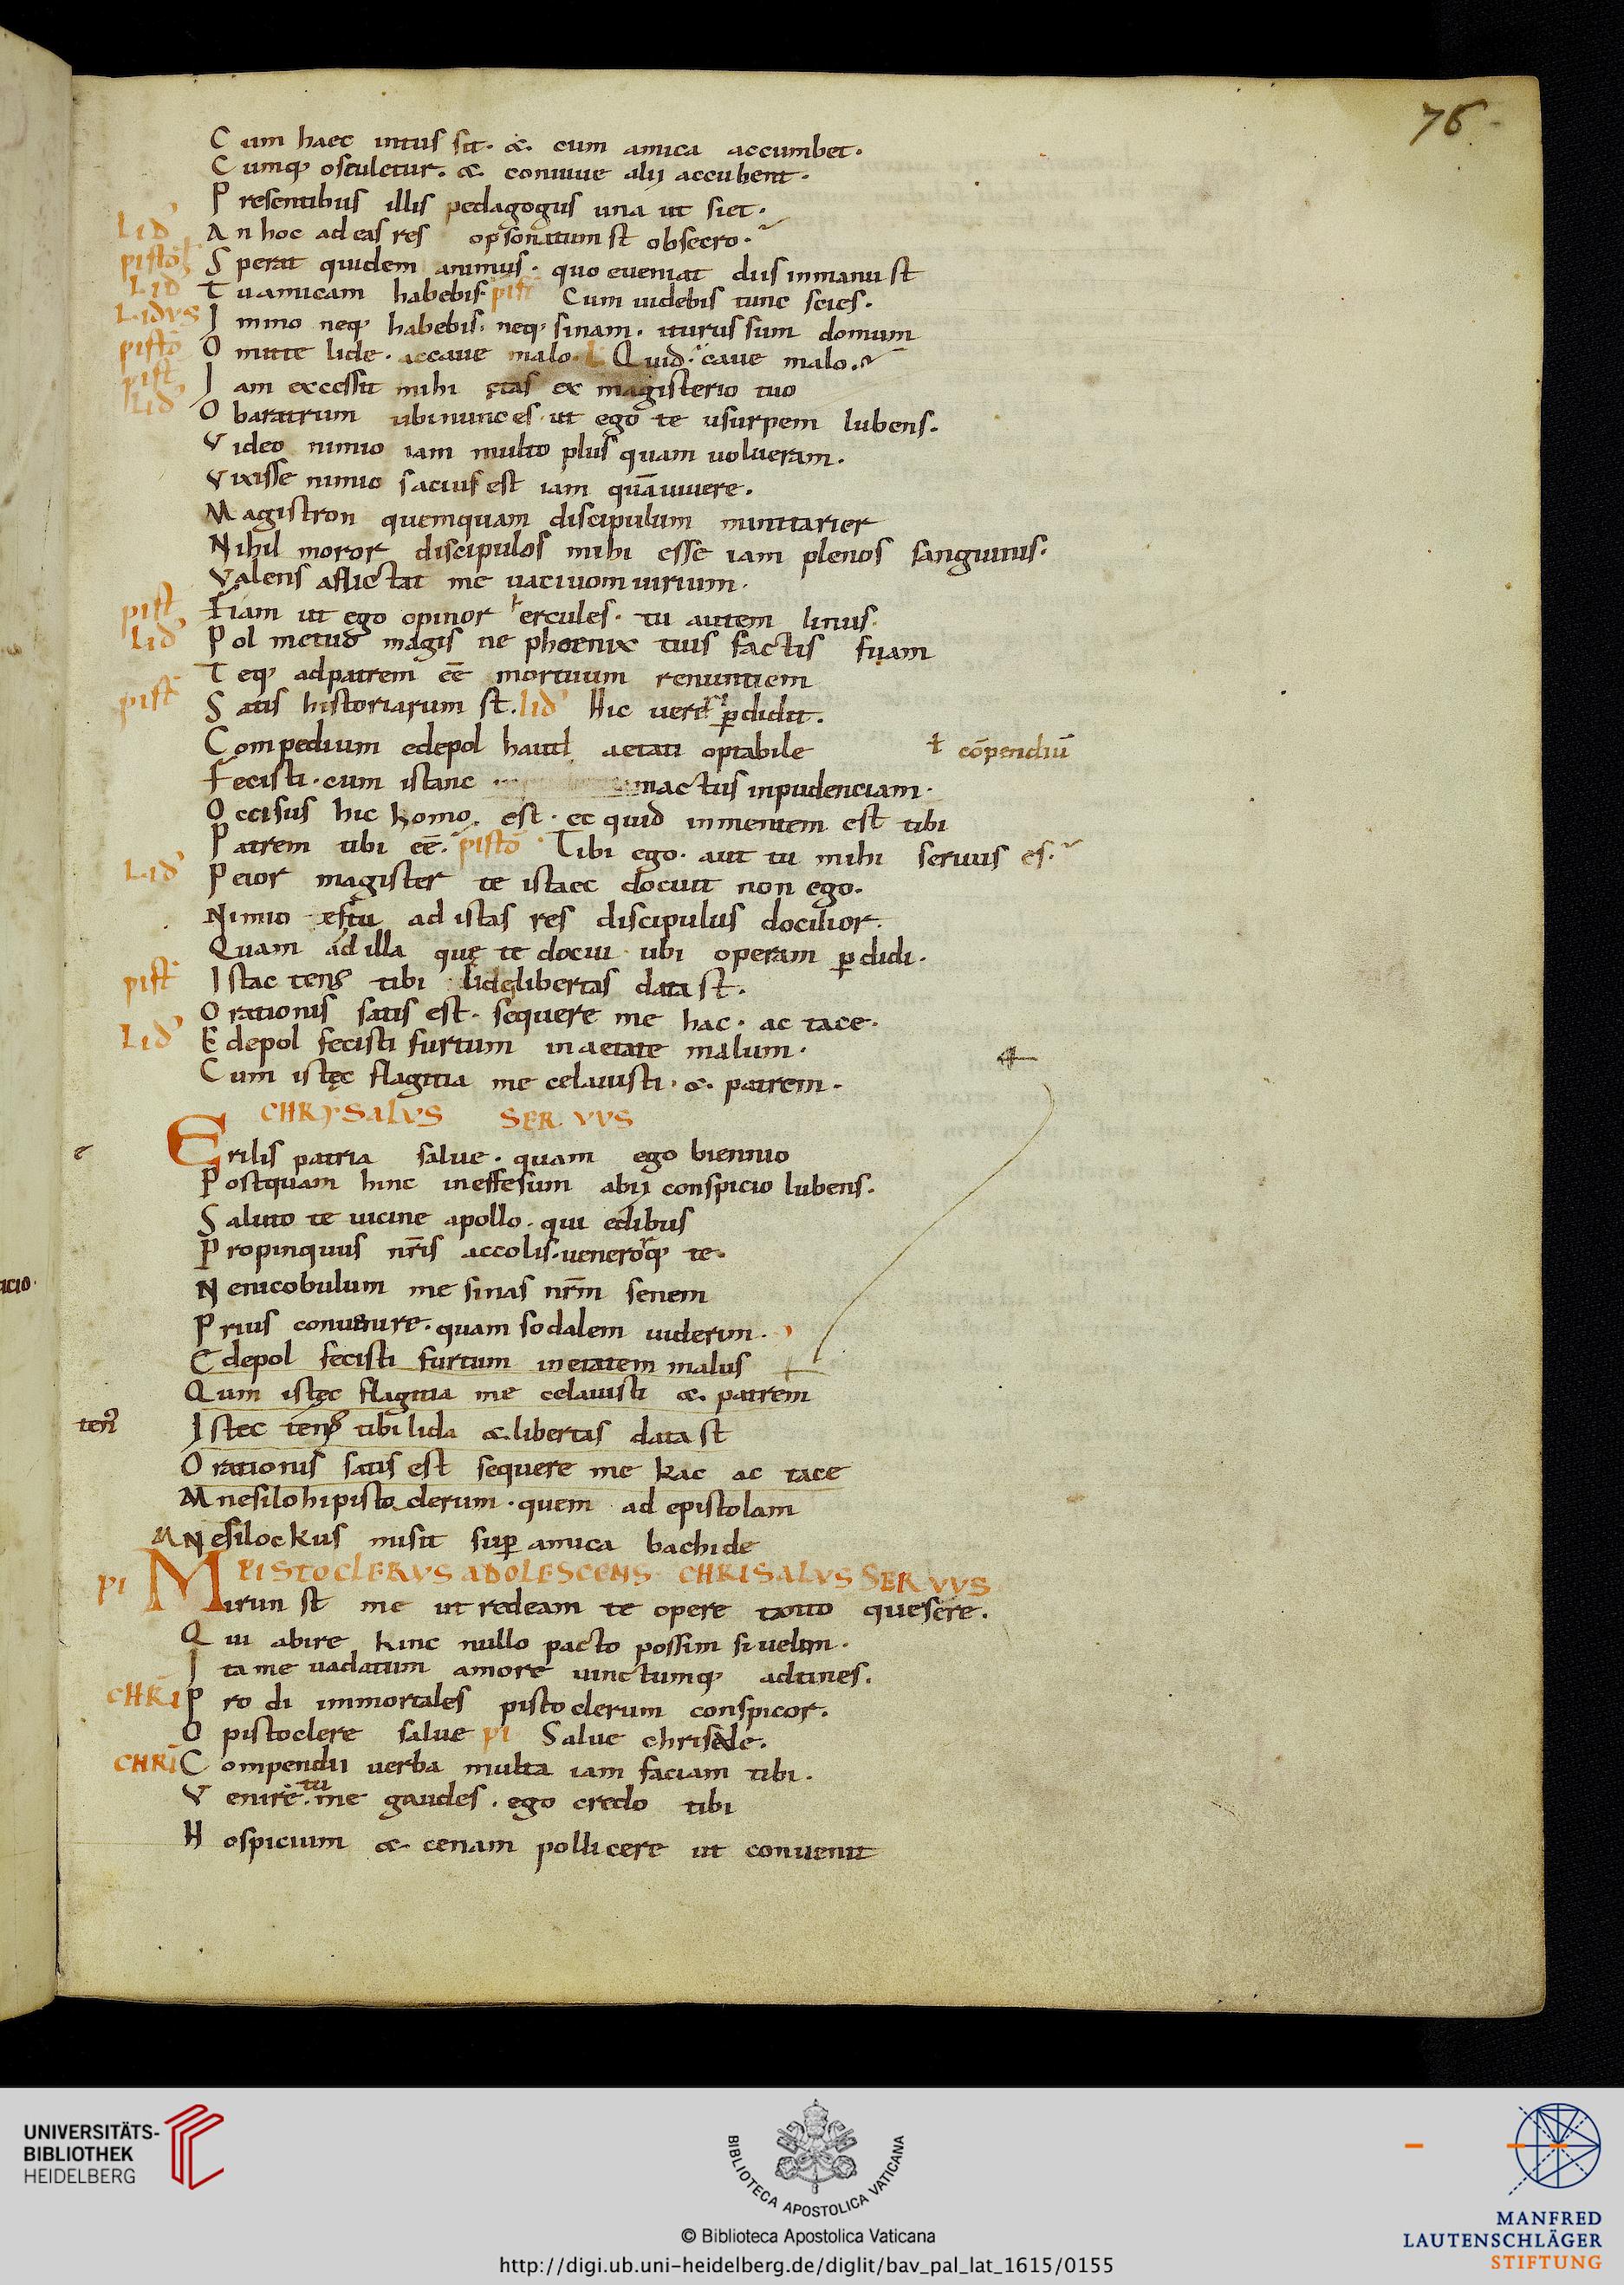 76
Cum haec intus sit· &· cum amica accumbet·
Cumq; osculetur· &· conuiue alij accubent·
Presentibus illis pedagogus una ut siet·
Lid' An hoc ad eas res opsonatum st obsecro·
pisto Sperat quidem animus· quo eueniat diis inmanu st
Lid Tuamicam habebis· pist Cum uidebis tunc scies·
Lidus Immo neq; habebis· neq; sinam· iturus sum domum
pistō Omitte lide· accaue malo· l Quid· caue malo·
pist Iam excessit mihi ętas ex magisterio tuo
Lid' O baratrum ubinunc es· ut ego te usurpem lubens·
Video nimio iam multo plus quam uolueram·
Vixisse nimio sacius est iam quā uiuere·
Magistron quemquam discipulum minitarier
Nihil moror discipulos mihi esse iam plenos sanguinis·
Valens aflictat me uaciuom uirium·
pist Fiam ut ego opinor hercules· tu autem linus·
Lid' Pol metuo magis ne phoenix tuis factis fuam
Teq; adpatrem eē mortuum renuntiem
pist Satis historiarum st· lid' Hic uere pdidit·
Compedium edepol haud aetati optabile ł cōpendiū
Fecisti· cum istanc nactus inpudenciam·
Occisus hic homo est· ec quid inmentem est tibi
Patrem tibi eē· pistō Tibi ego· aut tu mihi seruus es·
Lid' Peior magister te istaec docuit non ego·
Nimio es tu ad istas res discipulus docilior·
Quam ad illa quę te docui ubi operam pdidi·
pist Istac tenꝰ tibi lide libertas data st·
Orationis satis est· sequere me hac· ac tace·
Lid' Edepol fecisti furtum in aetate malum·
Cum istęc flagitia me celauisti· &· patrem·
CHRYSALVS SERVVS
e Erilis patria salue· quam ego biennio
Postquam hinc ineffesum abij conspicio lubens·
Saluto te uicine apollo· qui edibus
Propinquus nr̄is accolis· ueneroq; te·
Nenicobulum me sinas nr̄m senem
Prius conuenire· quam sodalem uiderim·
Edepol fecisti furtum inetatem malus
Qum istęc flagitia me celauisti &· patrem
tenꝰ Istec tenꝰ tibi lida &· libertas data st
Orationis satis est sequere me hac ac tace
Mnesilohipisto clerum· quem ad epistolam
MNesilochus misit sup amica bachide
PISTOCLERVS ADOLESCENS· CHRISALVS SERVVS
PI Mirun st me ut redeam te opere tanto quesere·
Qui abire hinc nullo pacto possim si uelim·
Ita me uadatum amore uinctumq; adtines·
CHRI Pro di immortales pistoclerum conspicor·
O pistoclere salue PI Salue chrisale·
CHRI Compendii uerba multa iam faciam tibi·
Venire tu me gaudes· ego credo tibi
Hospicium &· cenam pollicere ut conuenit
icio·
UNIVERSITÄTS-
BIBLIOTHEK
HEIDELBERG
BIBLIOTECA APOSTOLICA VATICANA
© Biblioteca Apostolica Vaticana
http://digi.ub.uni-heidelberg.de/diglit/bav_pal_lat_1615/0155
MANFRED
LAUTENSCHLÄGER
STIFTUNG